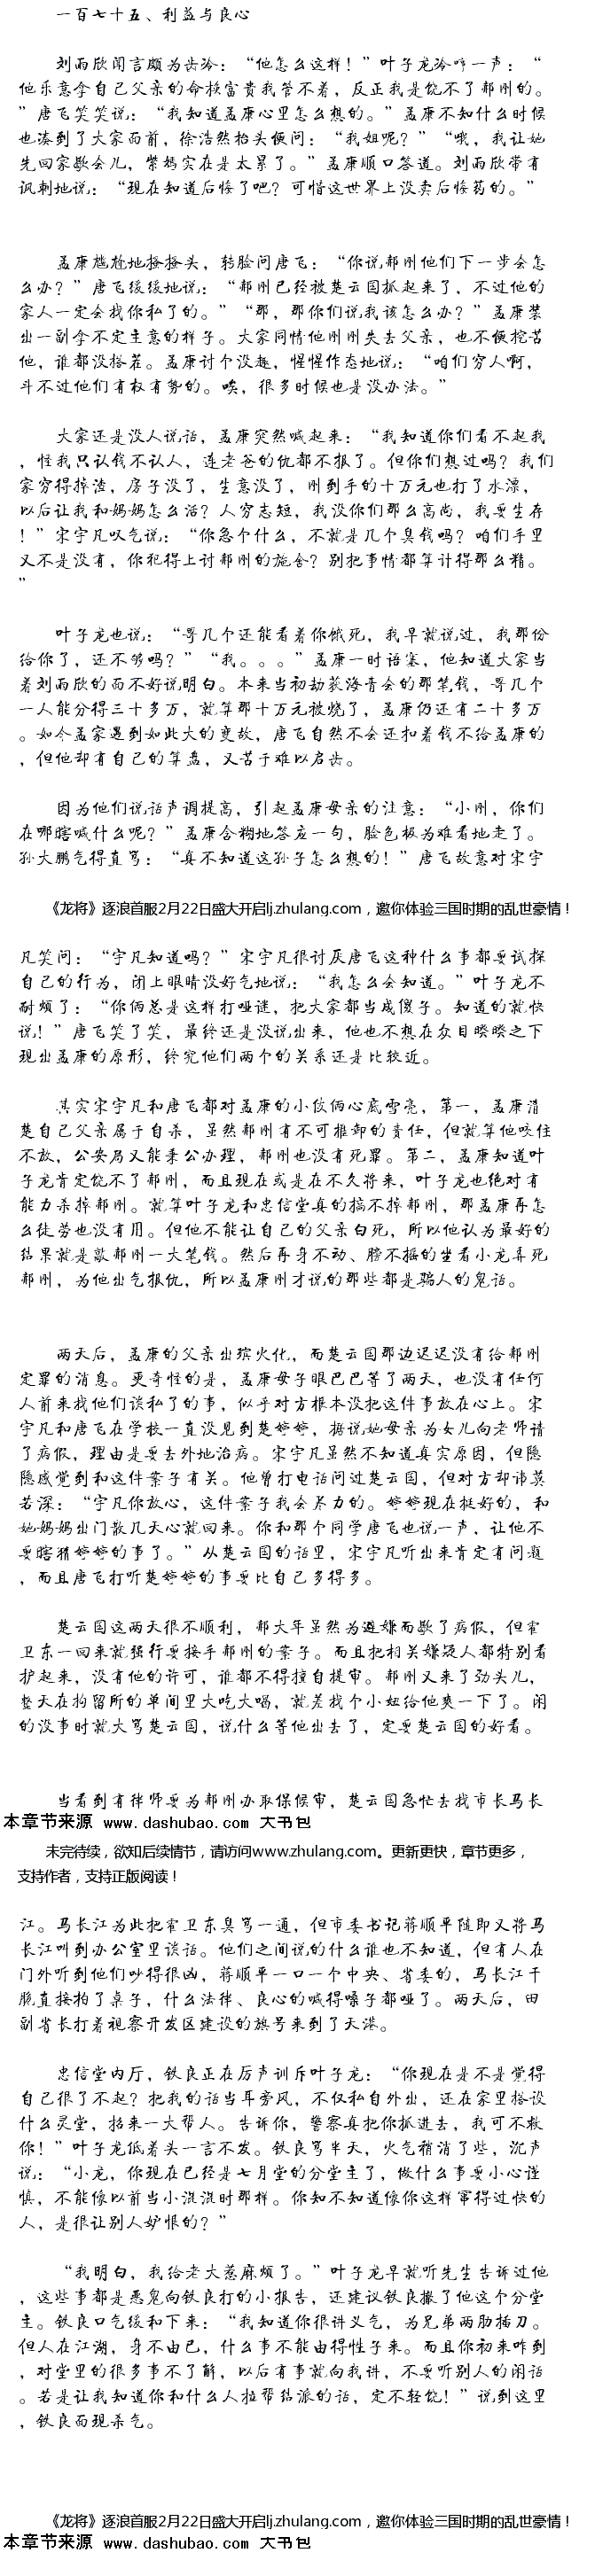 一百七十五、利益与良心
刘雨欣闻言颇为齿冷：“他怎么这样！”叶子龙冷哼一声：“
他乐意拿自己父亲的命换富贵我管不着，反正我是饶不了郝刚的。
”唐飞笑笑说：“我知道孟康心里怎么想的。”孟康不知什么时候
也凑到了大家面前，徐浩然抬头便问：“我姐呢？”“哦，我让她
先回家歇会儿，紫嫣实在是太累了。”孟康顺口答道。刘雨欣带有
讽刺地说：“现在知道后悔了吧？可惜这世界上没卖后悔药的。”
孟康尴尬地搔搔头，转脸问唐飞：“你说郝刚他们下一步会怎
么办？”唐飞缓缓地说：“郝刚已经被楚云国抓起来了，不过他的
家人一定会找你私了的。”“那，那你们说我该怎么办？”孟康装
出一副拿不定主意的样子。大家同情他刚刚失去父亲，也不便挖苦
他，谁都没搭茬。孟康讨个没趣，惺惺作态地说：“咱们穷人啊，
斗不过他们有权有势的。唉，很多时候也是没办法。”
大家还是没人说话，孟康突然喊起来：“我知道你们看不起我
，怪我只认钱不认人，连老爸的仇都不报了。但你们想过吗？我们
家穷得掉渣，房子没了，生意没了，刚到手的十万元也打了水漂，
以后让我和妈妈怎么活？人穷志短，我没你们那么高尚，我要生存
！”宋宇凡叹气说：“你急个什么，不就是几个臭钱吗？咱们手里
又不是没有，你犯得上讨郝刚的施舍？别把事情都算计得那么精。
”
叶子龙也说：“哥几个还能看着你饿死，我早就说过，我那份
给你了，还不够吗？”“我。。。”孟康一时语塞，他知道大家当
着刘雨欣的面不好说明白。本来当初劫获海青会的那笔钱，哥几个
一人能分得三十多万，就算那十万元被烧了，孟康仍还有二十多万
。如今孟家遇到如此大的变故，唐飞自然不会还扣着钱不给孟康的
，但他却有自己的算盘，又苦于难以启齿。
因为他们说话声调提高，引起孟康母亲的注意：“小刚，你们
在哪瞎喊什么呢？”孟康含糊地答应一句，脸色极为难看地走了。
孙大鹏气得直骂：“真不知道这孙子怎么想的！”唐飞故意对宋宇
《龙将》逐浪首服2月22日盛大开启lj.zhulang.com，邀你体验三国时期的乱世豪情！
凡笑问：“宇凡知道吗？”宋宇凡很讨厌唐飞这种什么事都要试探
自己的行为，闭上眼睛没好气地说：“我怎么会知道。”叶子龙不
耐烦了：“你俩总是这样打哑谜，把大家都当成傻子。知道的就快
说！”唐飞笑了笑，最终还是没说出来，他也不想在众目睽睽之下
现出孟康的原形，终究他们两个的关系还是比较近。
其实宋宇凡和唐飞都对孟康的小伎俩心底雪亮，第一，孟康清
楚自己父亲属于自杀，虽然郝刚有不可推卸的责任，但就算他咬住
不放，公安局又能秉公办理，郝刚也没有死罪。第二，孟康知道叶
子龙肯定饶不了郝刚，而且现在或是在不久将来，叶子龙也绝对有
能力杀掉郝刚。就算叶子龙和忠信堂真的搞不掉郝刚，那孟康再怎
么徒劳也没有用。但他不能让自己的父亲白死，所以他认为最好的
结果就是敲郝刚一大笔钱。然后再身不动、膀不摇的坐看小龙弄死
郝刚，为他出气报仇，所以孟康刚才说的那些都是骗人的鬼话。
两天后，孟康的父亲出殡火化，而楚云国那边迟迟没有给郝刚
定罪的消息。更奇怪的是，孟康母子眼巴巴等了两天，也没有任何
人前来找他们谈私了的事，似乎对方根本没把这件事放在心上。宋
宇凡和唐飞在学校一直没见到楚婷婷，据说她母亲为女儿向老师请
了病假，理由是要去外地治病。宋宇凡虽然不知道真实原因，但隐
隐感觉到和这件案子有关。他曾打电话问过楚云国，但对方却讳莫
若深：“宇凡你放心，这件案子我会尽力的。婷婷现在挺好的，和
她妈妈出门散几天心就回来。你和那个同学唐飞也说一声，让他不
要瞎猜婷婷的事了。”从楚云国的话里，宋宇凡听出来肯定有问题
，而且唐飞打听楚婷婷的事要比自己多得多。
楚云国这两天很不顺利，郝大年虽然为避嫌而歇了病假，但霍
卫东一回来就强行要接手郝刚的案子。而且把相关嫌疑人都特别看
护起来，没有他的许可，谁都不得擅自提审。郝刚又来了劲头儿，
整天在拘留所的单间里大吃大喝，就差找个小妞给他爽一下了。闲
的没事时就大骂楚云国，说什么等他出去了，定要楚云国的好看。
当看到有律师要为郝刚办取保候审，楚云国急忙去找市长马长
本章节来源 www.dashubao.com 大书包
未完待续，欲知后续情节，请访问www.zhulang.com。更新更快，章节更多，
支持作者，支持正版阅读！
江。马长江为此把霍卫东臭骂一通，但市委书记蒋顺平随即又将马
长江叫到办公室里谈话。他们之间说的什么谁也不知道，但有人在
门外听到他们吵得很凶，蒋顺平一口一个中央、省委的，马长江干
脆直接拍了桌子，什么法律、良心的喊得嗓子都哑了。两天后，田
副省长打着视察开发区建设的旗号来到了天港。
忠信堂内厅，铁良正在厉声训斥叶子龙：“你现在是不是觉得
自己很了不起？把我的话当耳旁风，不仅私自外出，还在家里搭设
什么灵堂，招来一大帮人。告诉你，警察真把你抓进去，我可不救
你！”叶子龙低着头一言不发。铁良骂半天，火气稍消了些，沉声
说：“小龙，你现在已经是七月堂的分堂主了，做什么事要小心谨
慎，不能像以前当小混混时那样。你知不知道像你这样窜得过快的
人，是很让别人妒恨的？”
“我明白，我给老大惹麻烦了。”叶子龙早就听先生告诉过他
，这些事都是恶鬼向铁良打的小报告，还建议铁良撤了他这个分堂
主。铁良口气缓和下来：“我知道你很讲义气，为兄弟两肋插刀。
但人在江湖，身不由已，什么事不能由得性子来。而且你初来咋到
，对堂里的很多事不了解，以后有事就向我讲，不要听别人的闲话
。若是让我知道你和什么人拉帮结派的话，定不轻饶！”说到这里
，铁良面现杀气。
《龙将》逐浪首服2月22日盛大开启lj.zhulang.com，邀你体验三国时期的乱世豪情！
本章节来源 www.dashubao.com 大书包